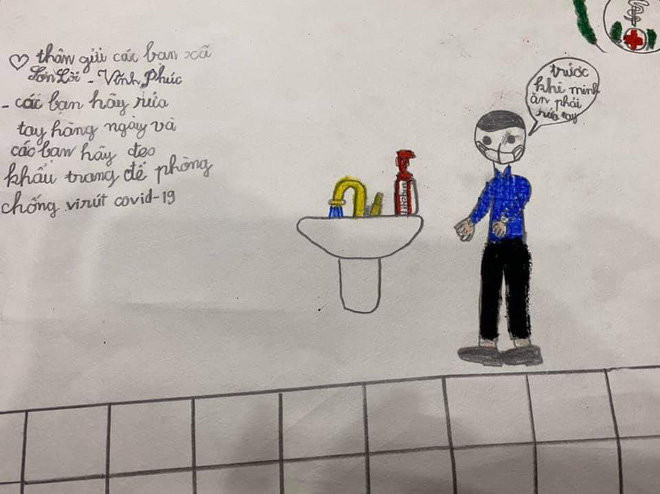 thân gửi các bạn xã
Sơn Lôi - Vĩnh Phúc
- các bạn hãy rửa
tay hàng ngày và
các bạn hãy đeo
khẩu trang để phòng
chống virút covid-19
trước
khi mình
ăn phải
rửa tay